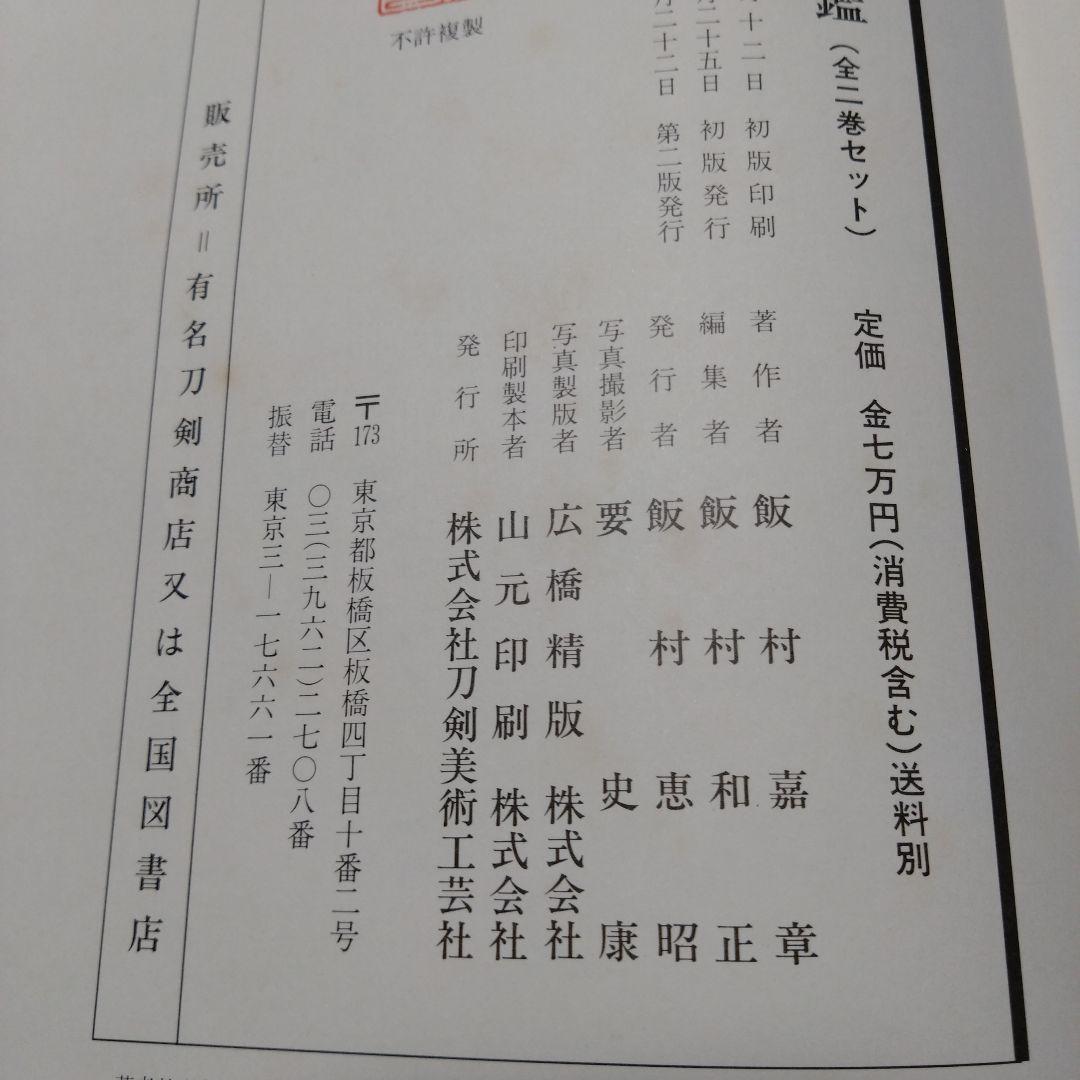 鑑(全二巻セット) 定価 金七万円(消費税含む)送料別
十二日 初版印刷
二十五日 初版発行
月二十二日 第二版発行
不許複製
著作者 飯村嘉章
編集者 飯村和正
発行者 飯村恵昭
写真撮影者 要史康
写真製版者 広橋精版株式会社
印刷製本者 山元印刷株式会社
発行所 株式会社刀剣美術工芸社
〒173 東京都板橋区板橋四丁目十番二号
電話 〇三(三九六二)二七〇八番
振替 東京三—一七六六一番
販売所=有名刀剣商店又は全国図書店